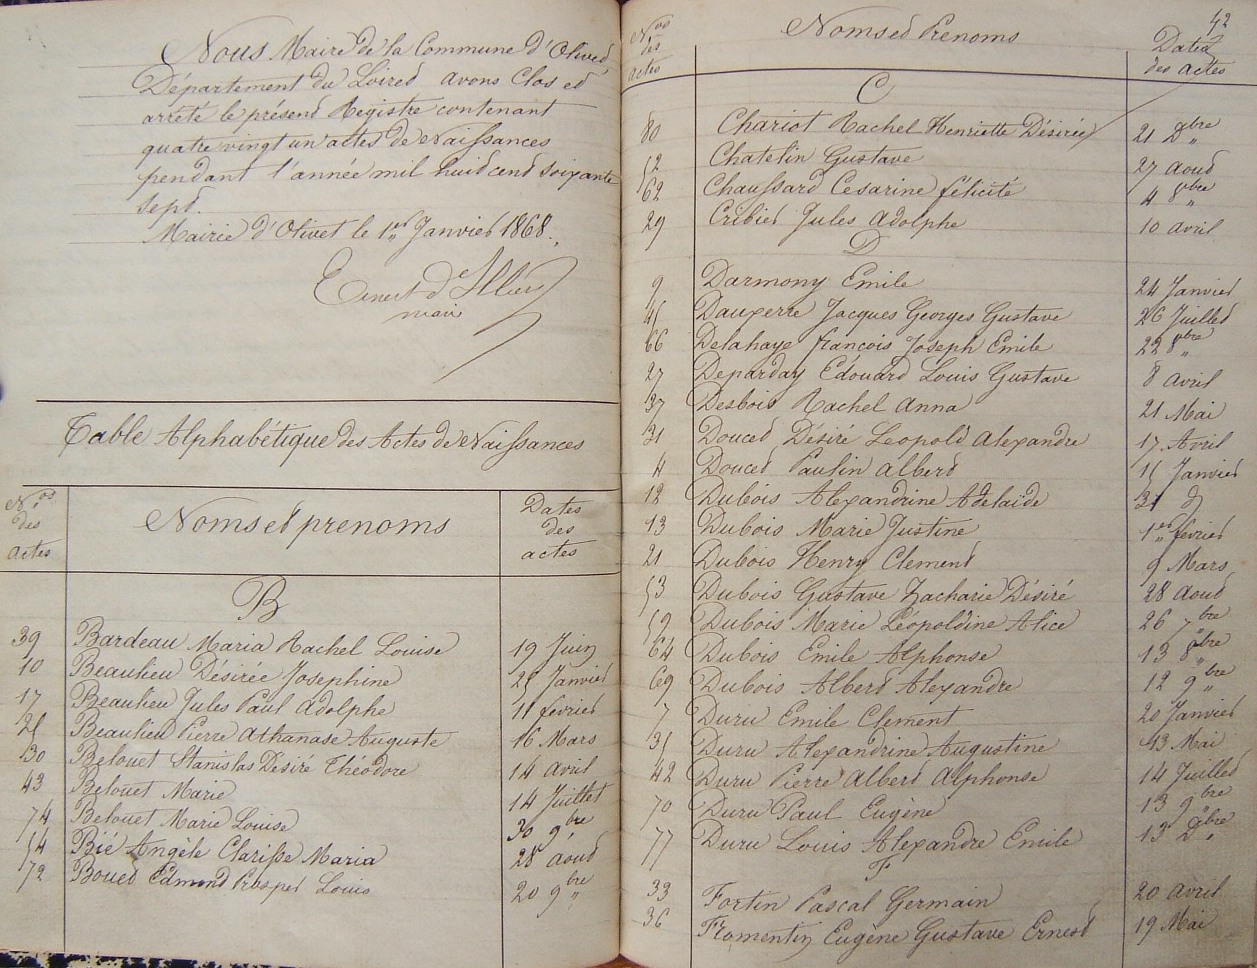 Nous Maire de la Commune d'Olivet,
Département du Loiret avons Clos et
arrêté le présent Registre contenant
quatre vingt un actes de Naissances
pendant l'année mil huit cent soixante
sept.
Mairie d'Olivet le 1er Janvier 1868.
Ernest d'Illiers
maire
Table Alphabétique des Actes de Naissances
Nos des actes Noms et prenoms Dates des actes
B
39 Bardeau Maria Rachel Louise 19 Juin
10 Beaulieu Désirée Josephine 25 Janvier
17 Beaulieu Jules Paul Adolphe 11 février
25 Beaulieu Pierre Athanase Auguste 16 Mars
30 Belouet Stanislas Désiré Théodore 14 avril
43 Belouet Marie 14 Juillet
74 Belouet Marie Louise 30 9bre
54 Bié Angèle Clarisse Maria 28 Aout
72 Bouet Edmond Prosper Louis 20 9bre
42
Nos des actes Noms et Prenoms Dates des actes
C
80 Chariot Rachel Henriette Désirée 21 Xbre
52 Chatelin Gustave 27 Aout
62 Chaussard Cesarine félicité 4 8bre
29 Cribier Jules Adolphe 10 avril
D
9 Darmony Emile 24 Janvier
45 Dauxerre Jacques Georges Gustave 26 Juillet
66 Delahaye françois Joseph Emile 22 8bre
27 Deparday Edouard Louis Gustave 8 avril
37 Desbois Rachel Anna 21 Mai
31 Doucet Désiré Léopold Alexandre 17 Avril
4 Doucet Paulin Albert 15 Janvier
12 Dubois Alexandrine Adelaïde 31 d
13 Dubois Marie Justine 1er février
21 Dubois Henry Clement 9 Mars
53 Dubois Gustave Zacharie Désiré 28 Aout
59 Dubois Marie Léopoldine Alice 26 7bre
64 Dubois Emile Alphonse 13 8bre
69 Dubois Albert Alexandre 12 9bre
7 Duru Emile Clement 20 Janvier
35 Duru Alexandrine Augustine 13 Mai
42 Duru Pierre Albert Alphonse 14 Juillet
70 Duru Paul Eugène 13 9bre
77 Duru Louis Alexandre Emile 13 Xbre
F
33 Fortin Pascal Germain 20 avril
36 Fromentin Eugène Gustave Ernest 19 Mai